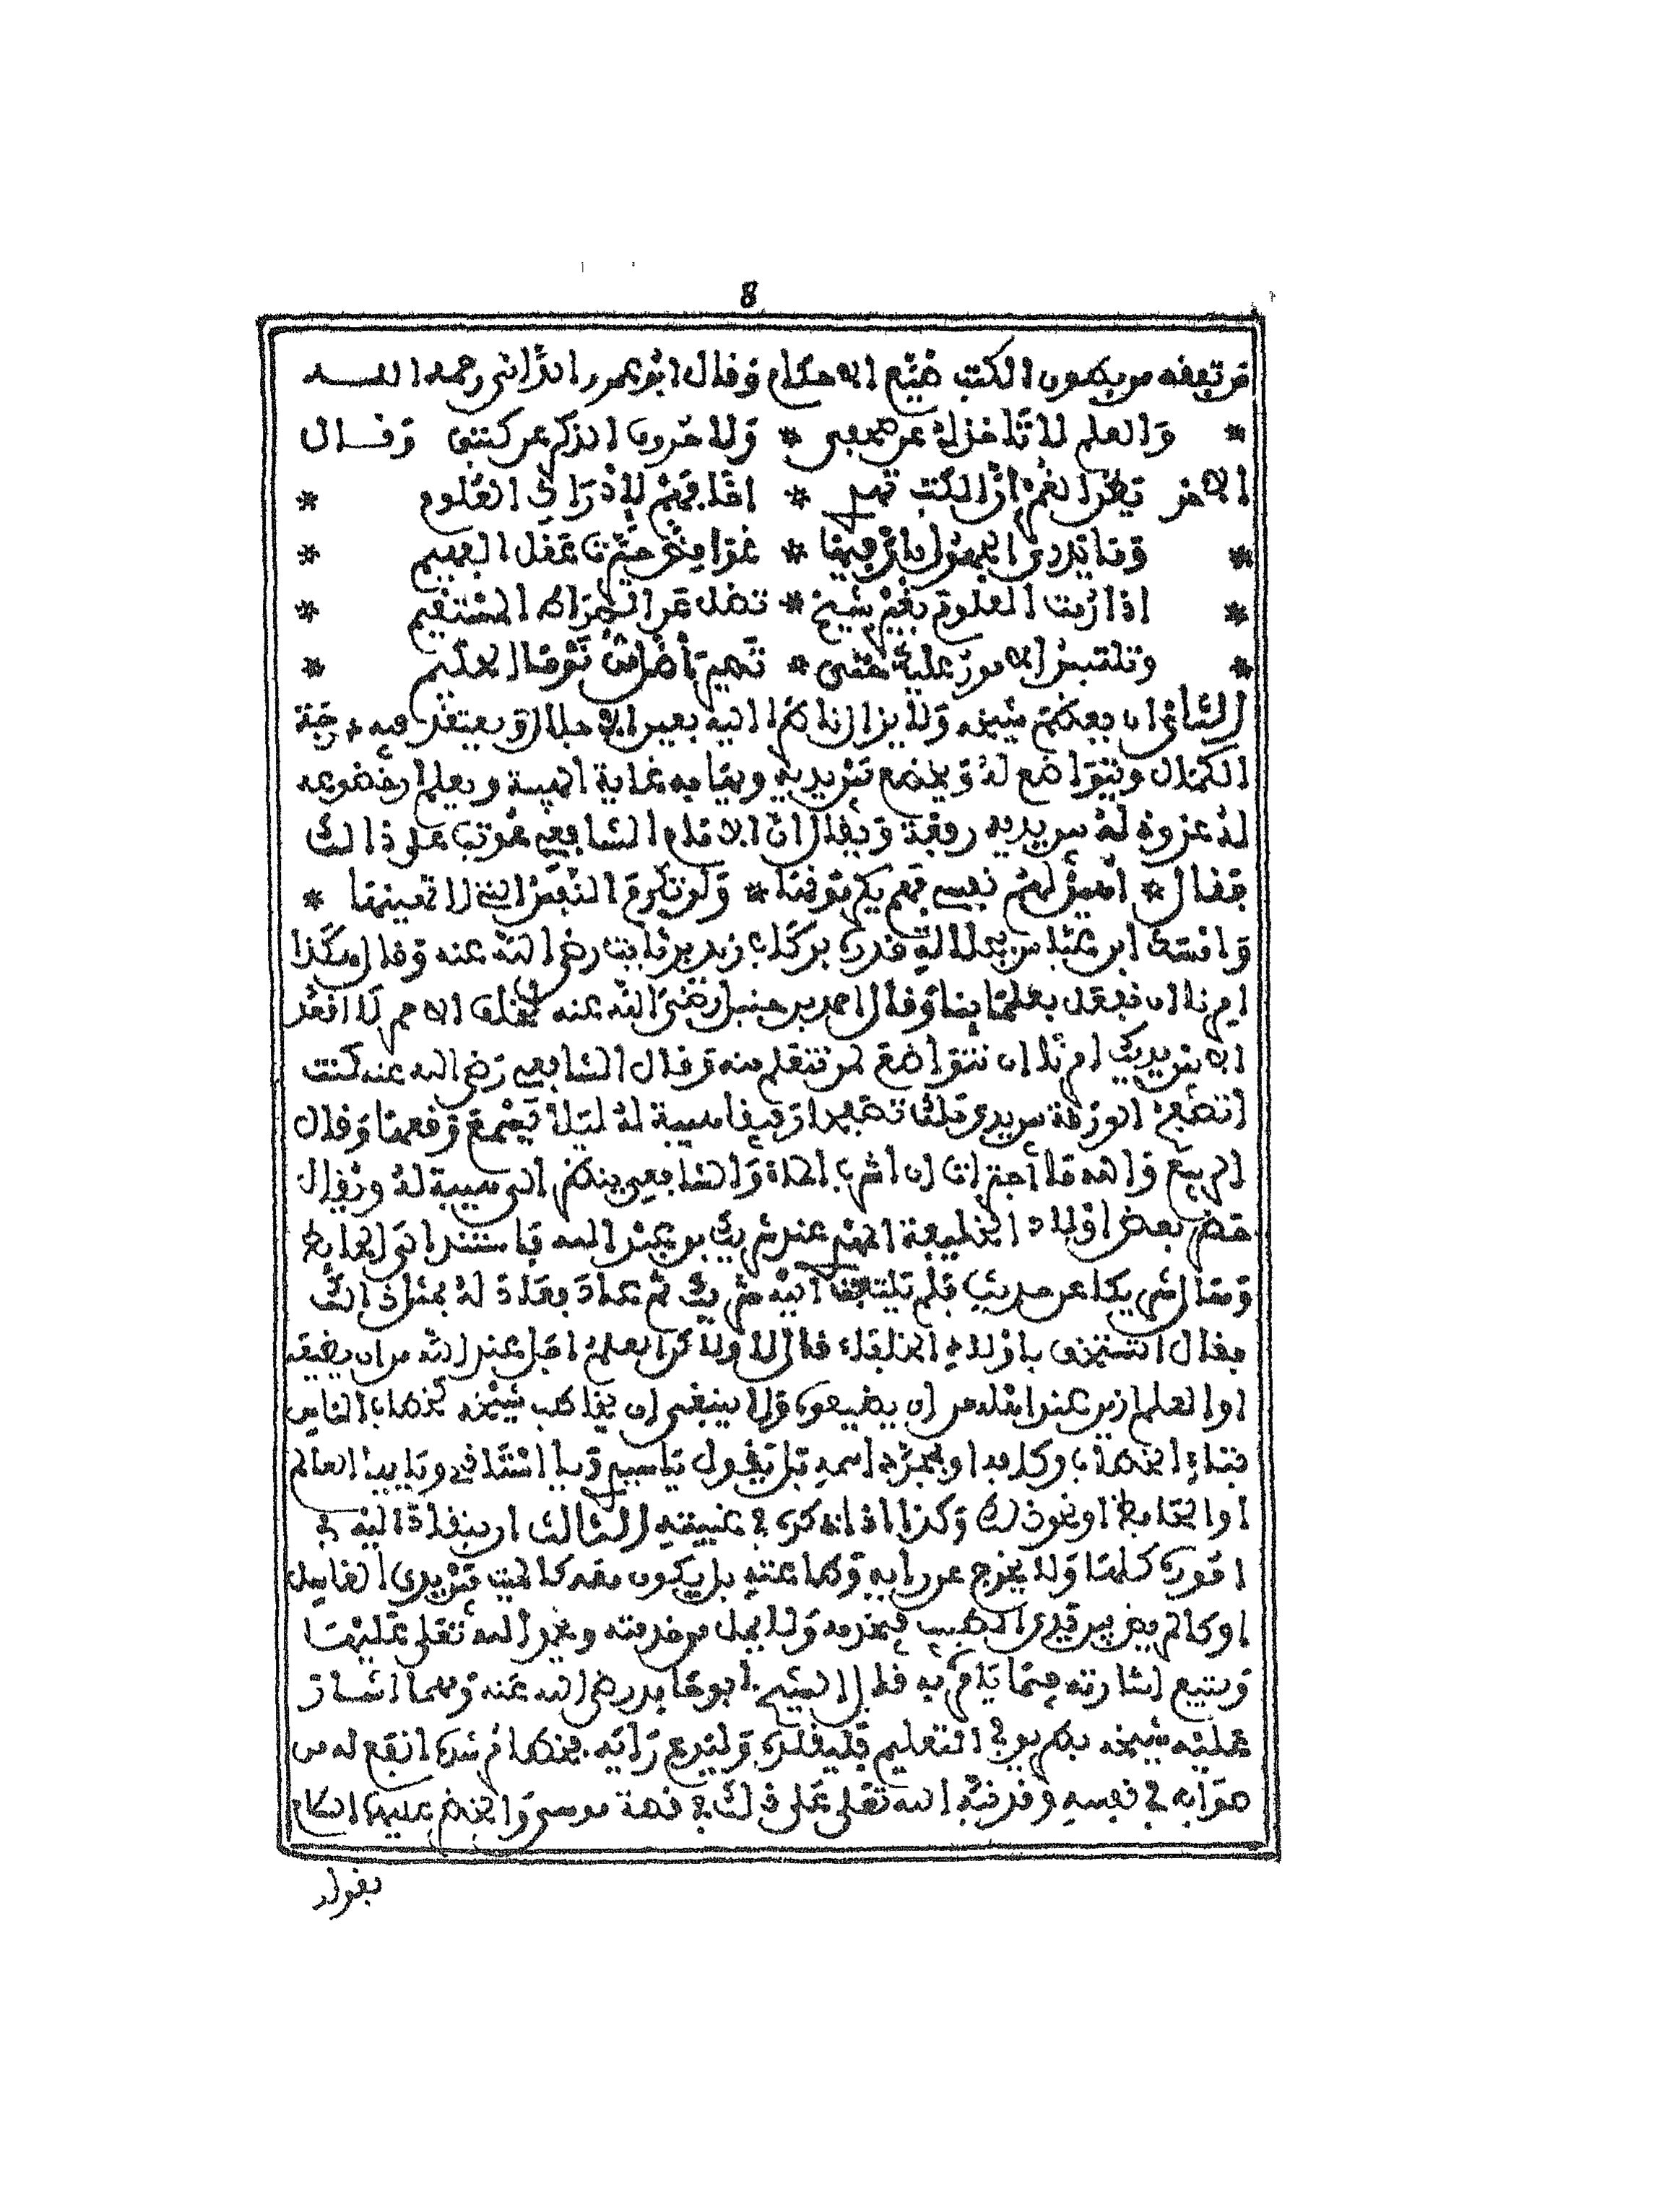 8
من تفقه من بطون الكتب ضيع الاحكام وقال ابو عمرو الداني رحمه الله
* والعلم لا تأخذه عن صحفي * ولا حروف الذكر عن كتبي وقال
الاخر يظن الغمر ان الكتب تهد * اخا فهم لادراك العلوم *
* وما يدري الجهول بان فيها * غوامض حيرت عقل الفهيم *
* اذا رمت العلوم بغير شيخ * تضل عن الصراط المستقيم *
* وتلتبس الامور عليك حتى * تصير اضل من توما الحكيم *
الثاني ان يعظم شيخه ولا يزال ناظرا اليه بعين الاجلال ويعتقد فيه درجة
الكمال ويتواضع له ويخضع بين يديه ويهابه غاية الهيبة ويعلم ان خضوعه
له عز وذله بين يديه رفعة ويقال ان الامام الشافعي عوتب على ذالك
فقال * اهين لهم نفسي فهم يكرمونها * ولن تكرم النفس التي لا تهينها *
وامسك ابن عباس بجلالة قدره بركاب زيد بن ثابت رضي الله عنه وقال هكذا
امرنا ان نفعل بعلمائنا وقال احمد بن حنبل رضي الله عنه لخلف الاحمر لا اقعد
الا بين يديك امرنا ان نتواضع لمن نتعلم منه وقال الشافعي رضي الله عنه كنت
اتصفح الورقة بين يدي مالك تصفحا رفيقا هيبة له ليلا يسمع وقعها وقال
الربيع والله ما اجترات ان اشرب الماء والشافعي ينظر الى هيبة له
حضر بعض اولاد الخليفة المهدي عند شريك بن عبد الله فاستند الى الحايط
وسال شريكا عن حديث فلم يلتفت اليه شريك ثم عاد فعاد له بمثل ذالك
فقال اتستخف باولاد الخلفاء قال لا ولاكن العلم اجل عند الله من ان يضيعه
او العلم ازين عند اهله من ان يضيعوه ولا ينبغي ان يخاطب شيخه خطاب الناس
بتاء الخطاب وكافه او بمجرد اسمه بل يقول يا سيدي ويا استاذي ويايها العالم
او الحافظ او نحو ذلك وكذا اذا ذكره في غيبته الثالث ان ينقاد اليه في
اموره كلها ولا يخرج عن رايه وطاعته بل يكون معه كالميت بين يدي الغاسل
او كالمريض بين يدي الطبيب فيخدمه ولا يمل من خدمته ويحمد الله تعلى عليها
ويتبع اشارته فيما يامر به قال الشيخ ابو حامد رضي الله عنه ومهما اشار
عليه شيخه بطريق في التعليم فليقلده وليدع رايه فخطا مرشده انفع له من
صوابه في نفسه وقد نبه الله تعلى على ذلك في قصة موسى والخضر عليهما السلام
بقوله